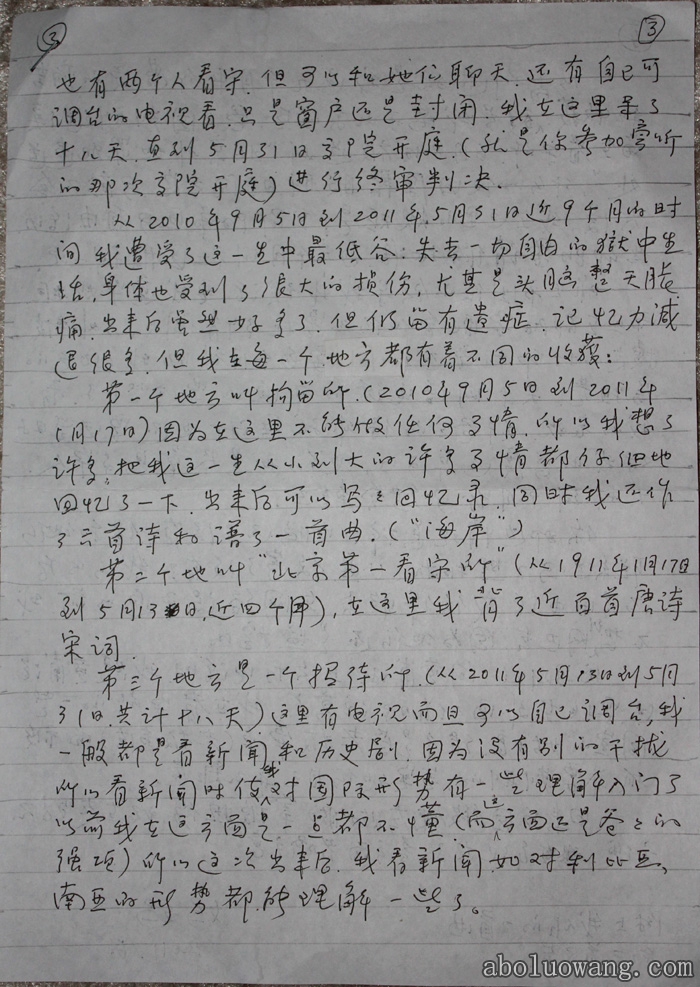 ③ 3
也有两个人看守.但可以和她们聊天.还有自己可
调台的电视看.只是窗户还是封闭.我在这里呆了
十八天.直到5月31日法院开庭.(就是你参加旁听
的那次法院开庭)进行终审判决.
从2010年9月5日到2011年.5月31日近9个月的时
间我遭受了这一生中最低谷:失去一切自由的狱中生
活,身体也受到了很大的损伤,尤其是头脑整天胀
痛.出来后虽然好多了.但仍留有遗症.记忆力减
退很多.但我在每一个地方都有着不同的收获:
第一个地方叫拘留所.(2010年9月5日到2011年
1月17日)因为在这里不能做任何事情.所以我想了
许多,把我这一生从小到大的许多事情都仔细地
回忆了一下.出来后可以写写回忆录.同时我还作
了三首诗和谱了一首曲.("海岸")
第二个地叫"北京第一看守所"(从1911年1月17日
到5月13日,近四个月),在这里我背了近百首唐诗
宋词.
第三个地方是一个招待所.(从2011年5月13日到5月
31日,共计十八天)这里有电视而且可以自己调台,我
一般都是看新闻和历史剧.因为没有别的干扰
所以看新闻时使我对国际形势有一些理解入门了
以前我在这方面是一点都不懂(而这方面还是爸爸的
强项)所以这次出来后.我看新闻.如对利比亚、
南亚的形势都能理解一些了。
aboluowang.com